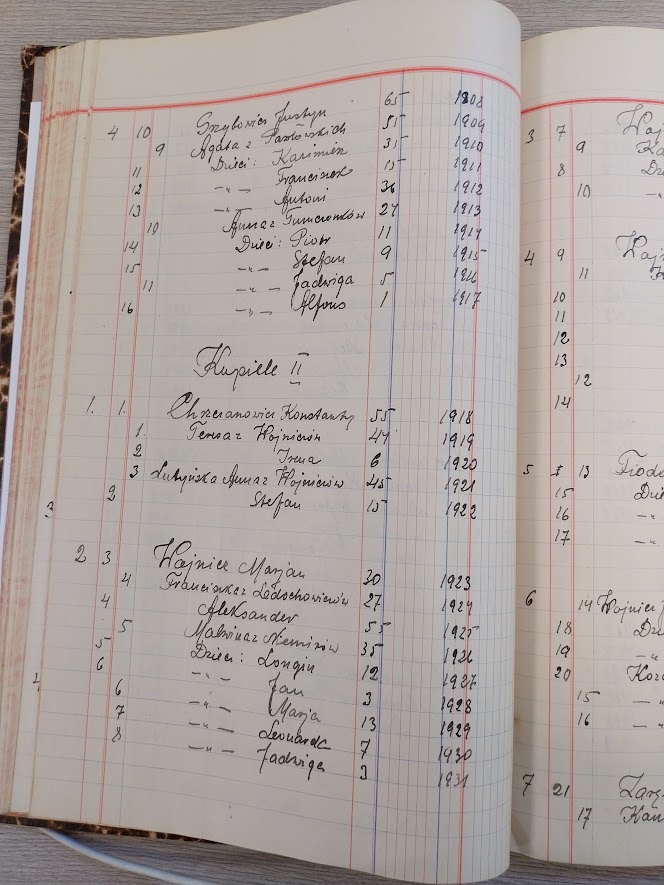 4 10 Grzybowicz Justyn 65 1908
9 Agata z Pawłowskich 55 1909
Dzieci: Kazimierz 35 1910
11 -„- Franciszek 15 1911
12 -„- Antoni 36 1912
13 Anna z 27 1913
10 Dzieci: Piotr 11 1914
14 -„- Stefan 9 1915
15 -„- Jadwiga 5 1916
11 -„- Alfons 1 1917
16
Kupiele II
1. 1. Chrzcianowicz Konstanty 55 1918
1. Teresa z Wojniczów 47 1919
2 Irena 6 1920
3 Lutyńska Anna z Wojniczów 45 1921
2 Stefan 15 1922
3
2 3 Wojnicz Marjan 30 1923
4 Franciszka z 27 1924
4 Aleksander 55 1925
5 Malwina z Niemirów 35 1926
5 Dzieci: Longin 12 1927
6 -„- Jan 3 1928
4 6 -„- Marja 13 1929
7 -„- Leonarda 7 1930
8 -„- Jadwiga 3 1931
3 7
9
8
10
4 9
11
10
11
12
13
12
14
5 13
15
16
17
6 14 Wojnicz
18
19
20
15
16
7 21
17